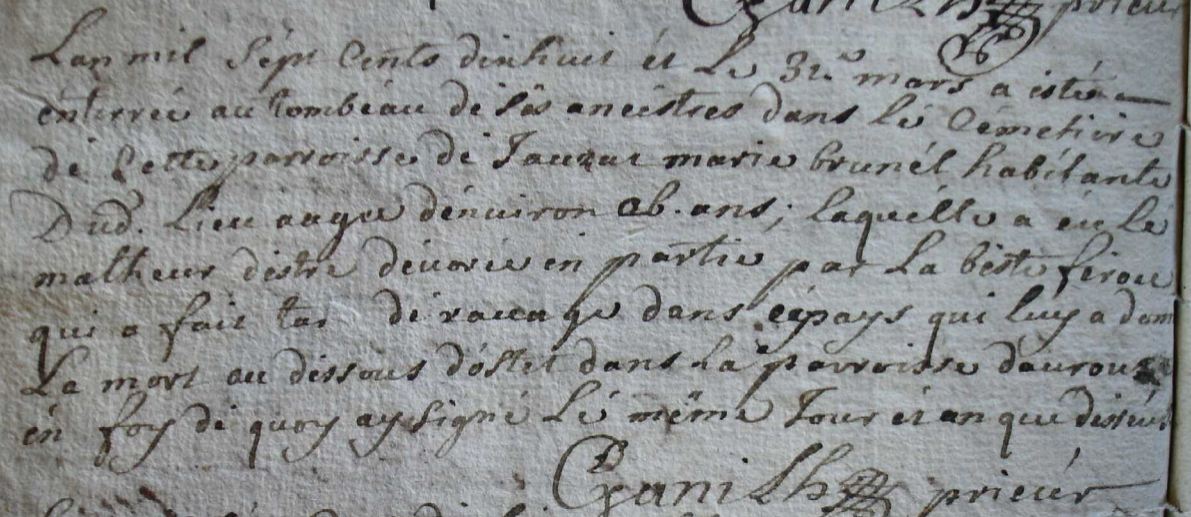 Ganilh prieur
Lan mil sépt Cents dixhuit ét Le 31e mars a esté
énterrée au tombéau de sés ancéstres dans Lé Cémetiere
dé Cette parroisse dé Tauzat marie brunél habitante
Dud. Lieu augée dénuiron 26. ans; laquélle a éu Le
malheur déstre déuorée en partie par La béste feroce
qui a fait tar dé rauage dans cépays qui luy a donné
La mort au déssous dostét dans la parroisse daurouze
én foy dé quoy ay signé Lé mémé Jour ét an que déssus
Ganilh prieur